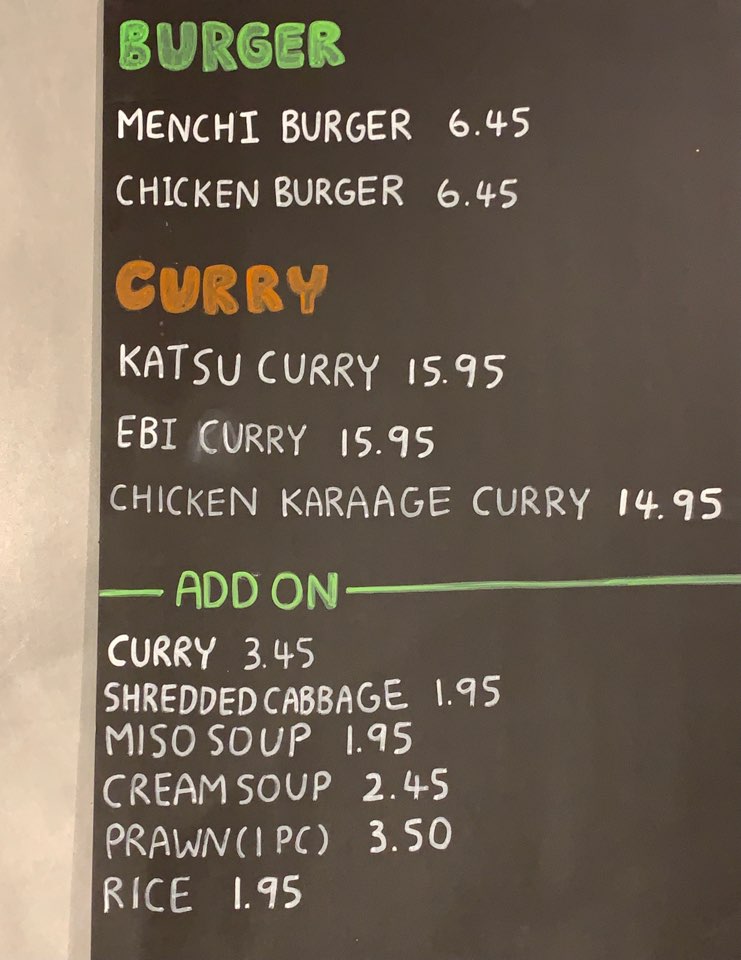 BURGER
MENCHI BURGER 6.45
CHICKEN BURGER 6.45
CURRY
KATSU CURRY 15.95
EBI CURRY 15.95
CHICKEN KARAAGE CURRY 14.95
ADD ON
CURRY 3.45
SHREDDED CABBAGE 1.95
MISO SOUP 1.95
CREAM SOUP 2.45
PRAWN (1 PC) 3.50
RICE 1.95